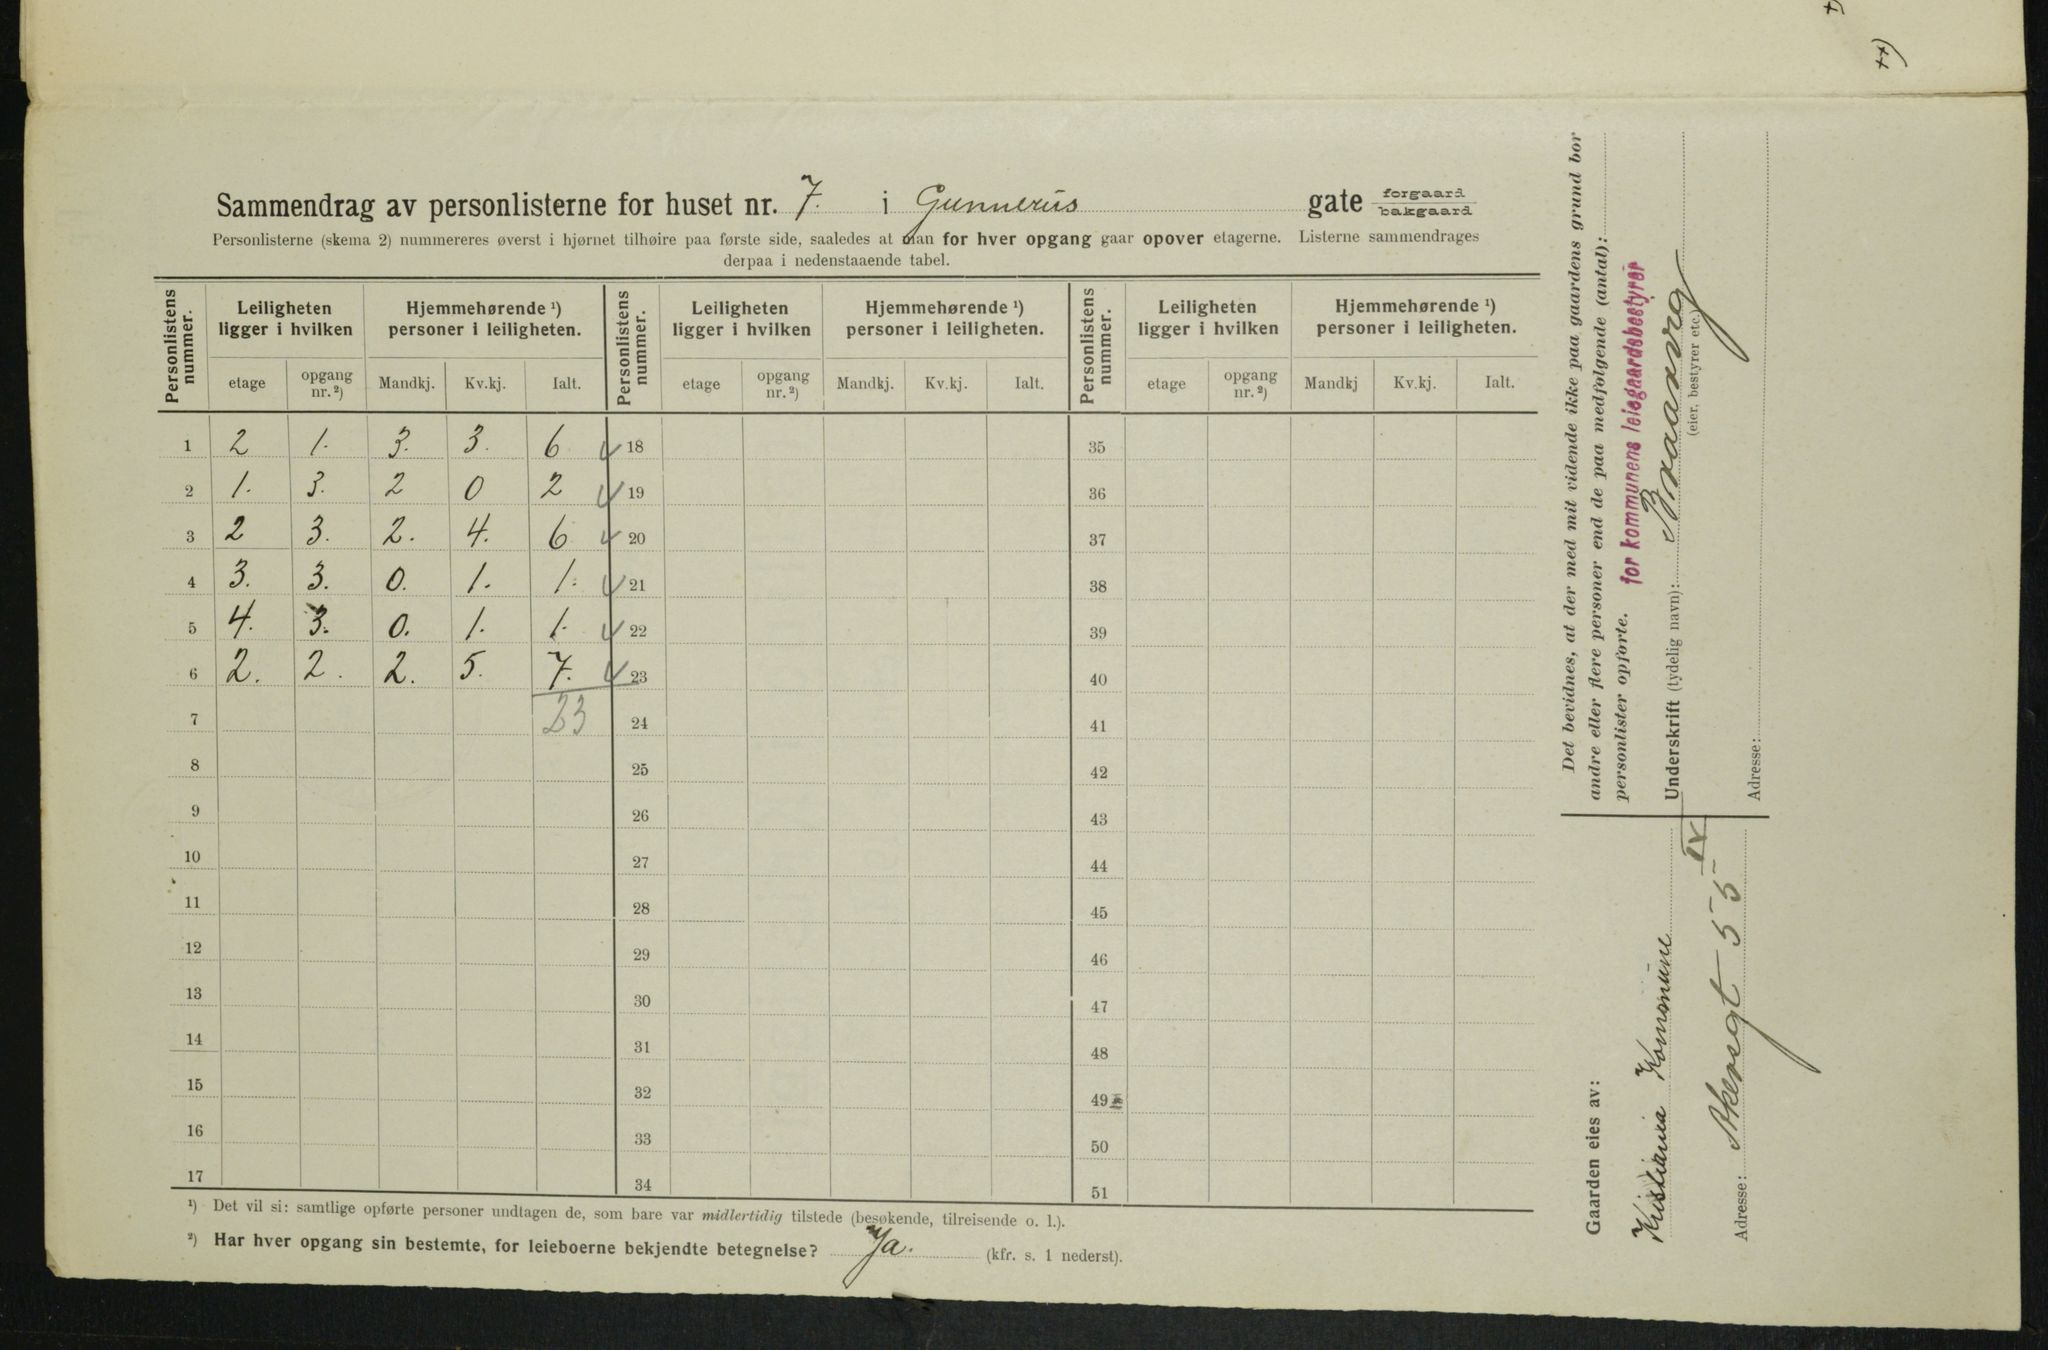 Sammendrag av personlisterne for huset nr. 7. i Gunnerus gate forgaard bakgaard
Personlisterne (skema 2) nummereres øverst i hjørnet tilhøire paa første side, saaledes at man for hver opgang gaar opover etagerne. Listerne sammendrages
derpaa i nedenstaaende tabel.
Personlistens nummer. Leiligheten ligger i hvilken Hjemmehørende ¹) personer i leiligheten. Personlistens nummer. Leiligheten ligger i hvilken Hjemmehørende ¹) personer i leiligheten. Personlistens nummer. Leiligheten ligger i hvilken Hjemmehørende ¹) personer i leiligheten.
etage opgang nr. ²) Mandkj. Kv.kj. Ialt. etage opgang nr. ²) Mandkj. Kv.kj. Ialt. etage opgang nr. ²) Mandkj Kv.kj. Ialt.
1 2 1. 3. 3. 6 18 35
2 1. 3. 2 0 2 19 36
3 2 3. 2. 4. 6 20 37
4 3. 3. 0. 1. 1. 21 38
5 4. 3. 0. 1. 1. 22 39
6 2. 2. 2. 5. 7. 23 40
7 23 24 41
8 25 42
9 26 43
10 27 44
11 28 45
12 29 46
13 30 47
14 31 48
15 32 49
16 33 50
17 34 51
¹) Det vil si: samtlige opførte personer undtagen de, som bare var midlertidig tilstede (besøkende, tilreisende o. l.).
²) Har hver opgang sin bestemte, for leieboerne bekjendte betegnelse? Ja. (kfr. s. 1 nederst).
Det bevidnes, at der med mit vidende ikke paa gaardens grund bor
andre eller flere personer end de paa medfølgende (antal):
personlister opførte. for kommunens leiegaardsbestyrer
Underskrift (tydelig navn): Braavog
(eier, bestyrer etc.)
Adresse:
Gaarden eies av:
Kristiania Kommune
Adresse: Akersgt 55 IV